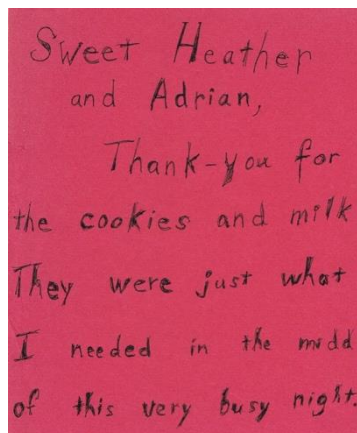 Sweet Heather
and Adrian,
Thank-you for
the cookies and milk
They were just what
I needed in the midd
of this very busy night.